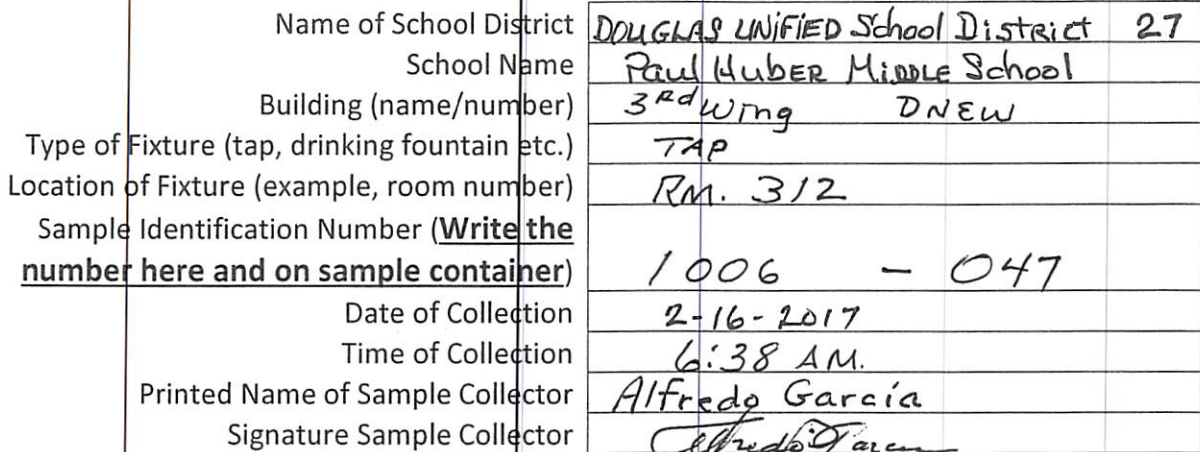 Name of School District DOUGLAS UNIFIED School District 27
School Name Paul Huber Middle School
Building (name/number) 3rd Wing DNEW
Type of Fixture (tap, drinking fountain etc.) TAP
Location of Fixture (example, room number) RM. 312
Sample Identification Number (Write the
number here and on sample container) 1006 - 047
Date of Collection 2-16-2017
Time of Collection 6:38 AM.
Printed Name of Sample Collector Alfredo Garcia
Signature Sample Collector Alfredo Garcia